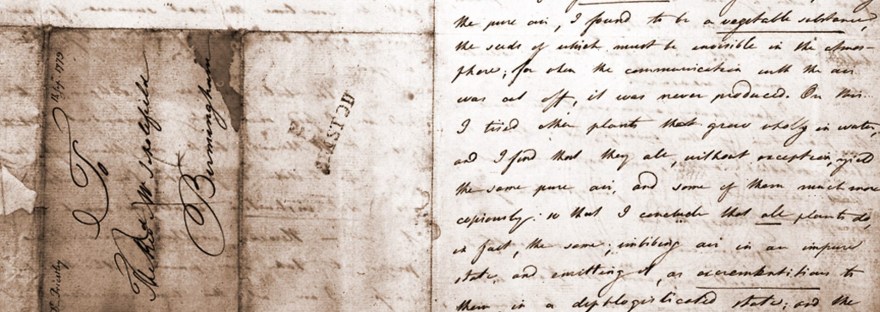 To
The Revd Mr Scholefield
Birmingham
the pure air, I found to be a vegetable substance,
the seeds of which must be invisible in the atmos-
phere; for when the communication with the air
was cut off, it was never produced. On this
I tried other plants that grow wholly in water,
and I find that they all, without exception, yield
the same pure air, and some of them much more
copiously: so that I conclude that all plants do,
in fact, the same; imbibing air in an impure
state, and emitting it, as excrementitious to
them, in a dephlogisticated state; and the